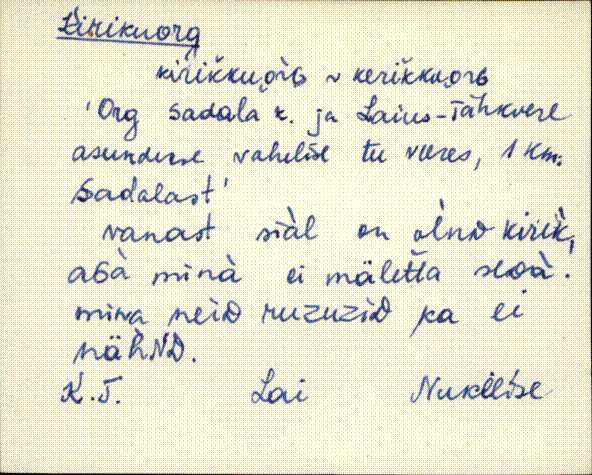 Kirikuorg
kirikkuòrG ~ kerikkuorG
'Org Sadala k. ja Laius-Tähkvere
asunduse vahelise tee veeres, 1 km.
Sadalast'
vanast siàl on òlnD kirik,
aGà minà ei mäletta seDà.
mina neiD ruzuziD ka ei
nähND.
K.T. Lai Nukilise